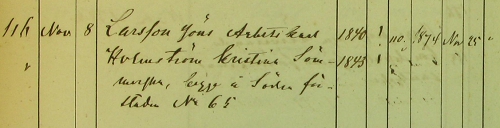 116 Nov 8 Larsson Jöns Arbetskarl 1840 ! no. 1874 Nov 25 "
" Holmström Kristina Söm- 1843 ! " " "
merska, begge i Södra för-
staden No 65